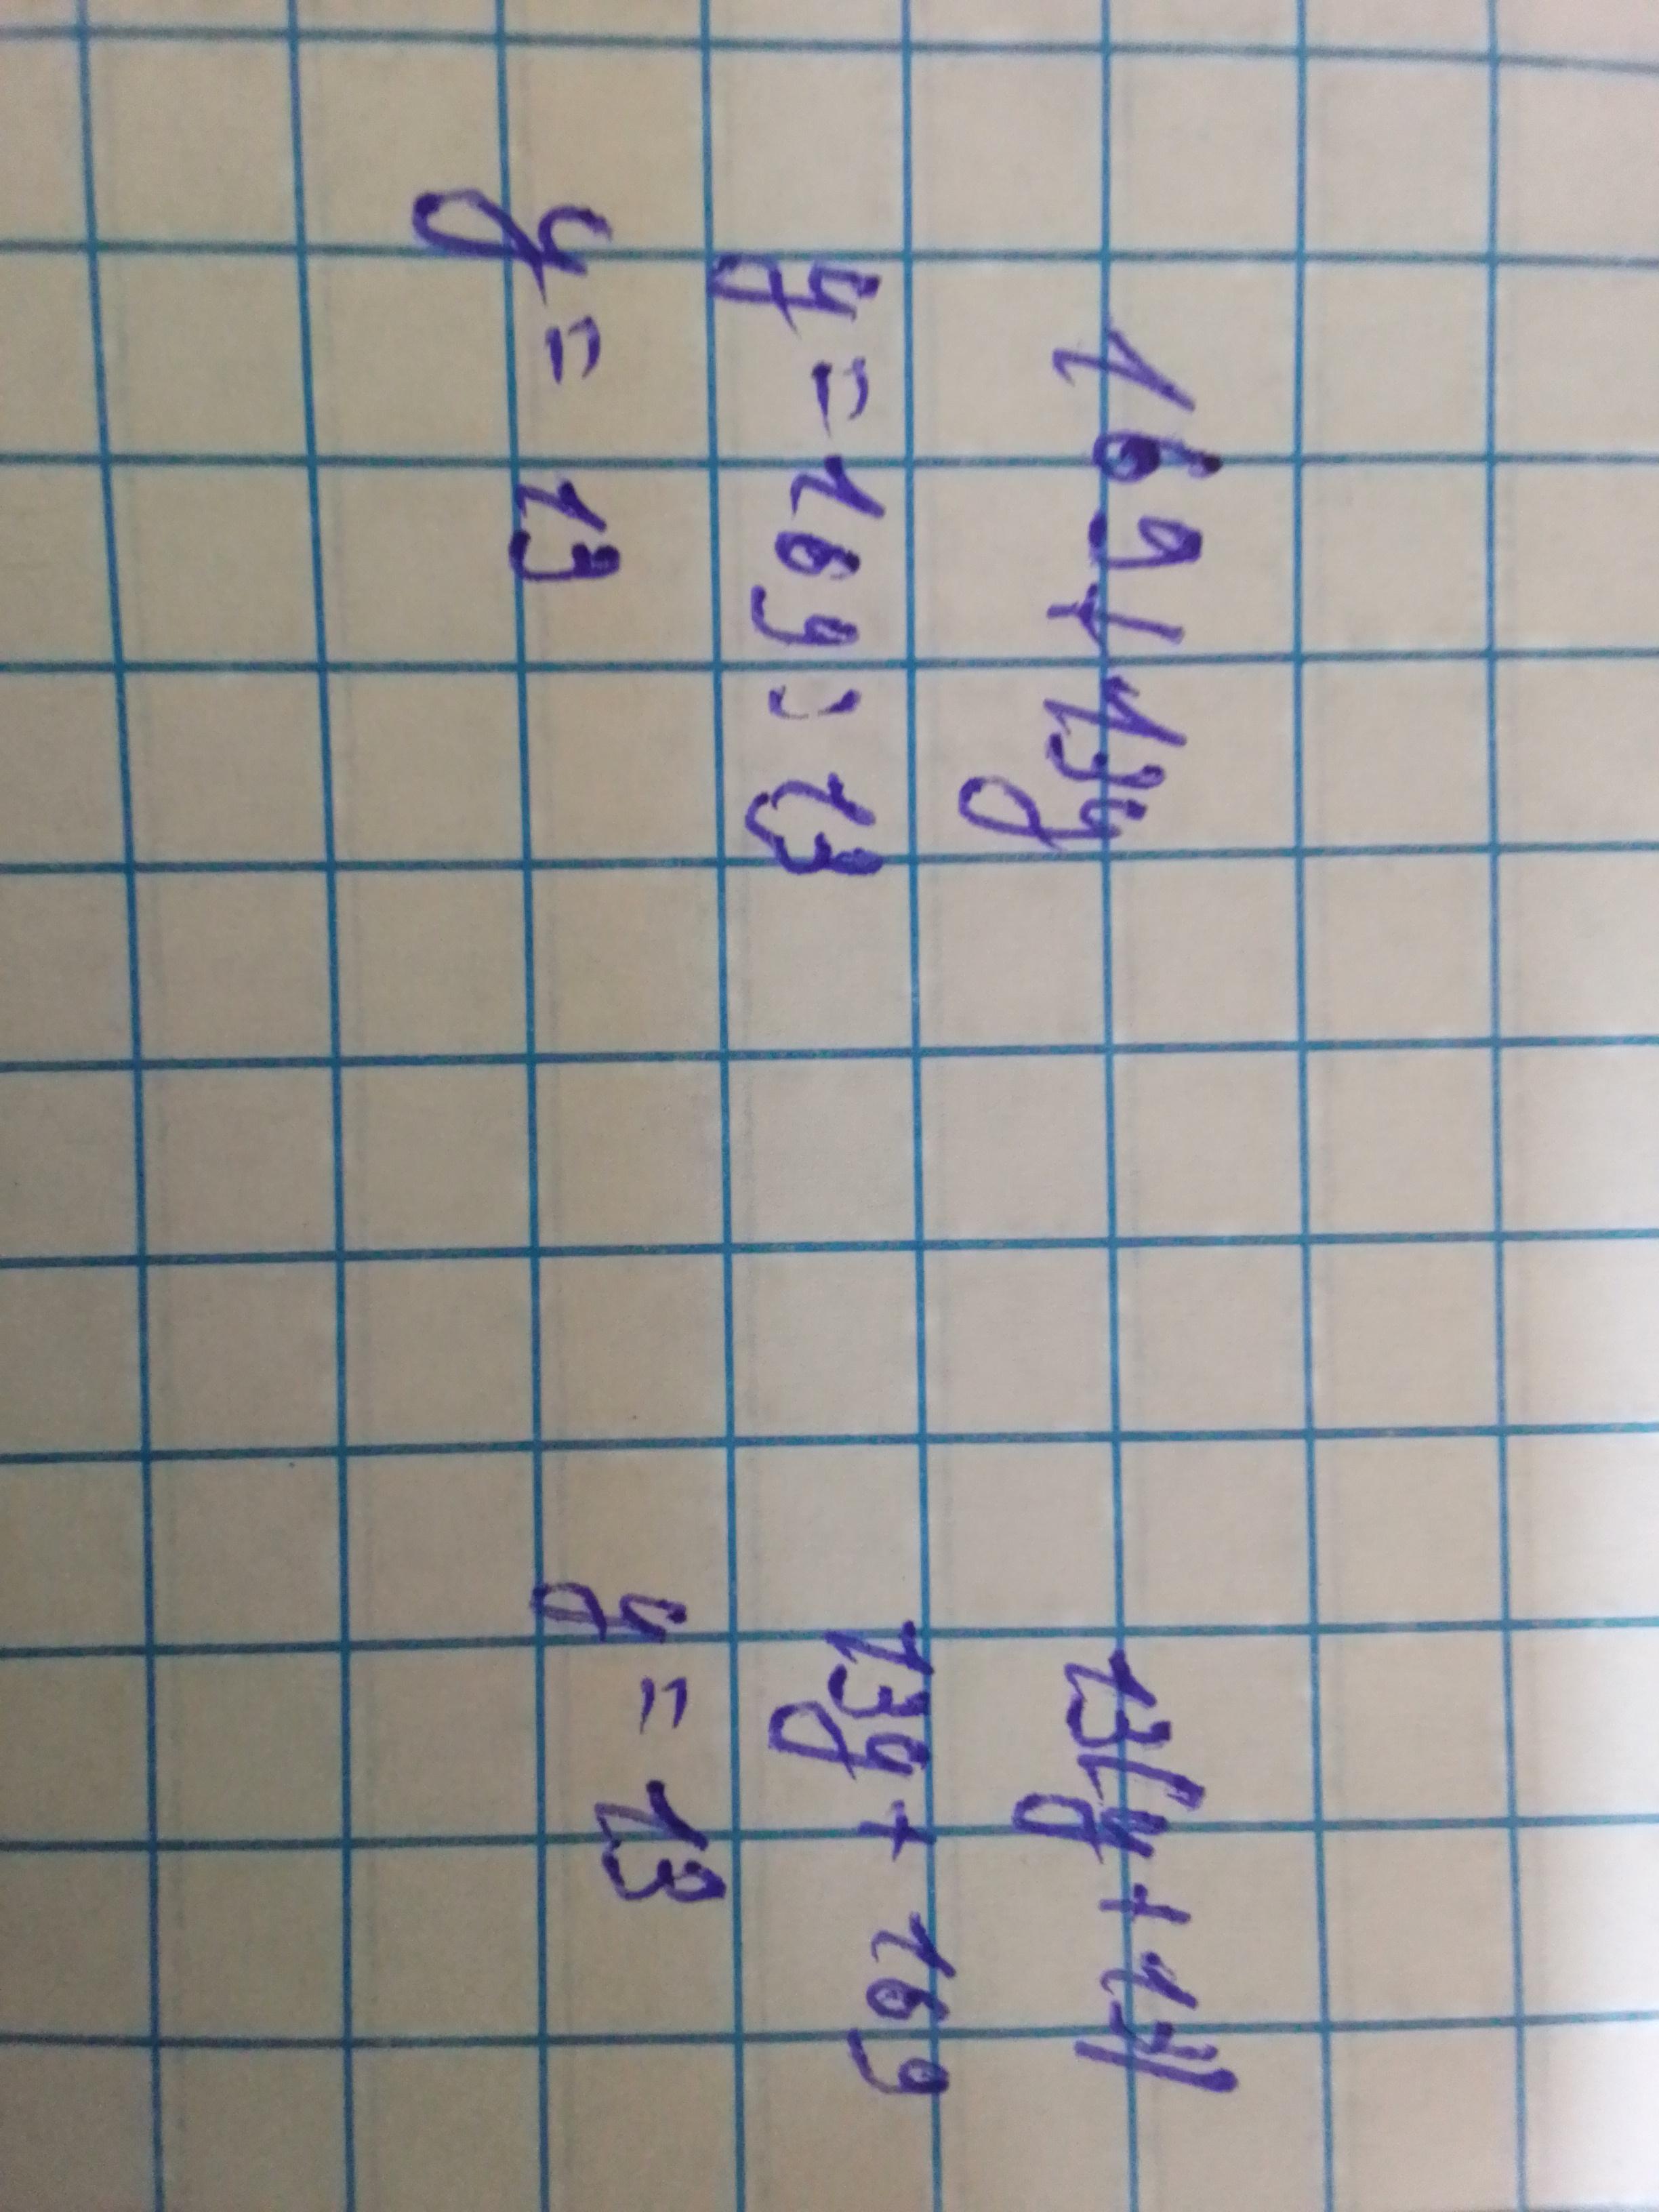 169+13y
y = 169 : 13
y = 13
13(y+13)
13y + 169
y = 13